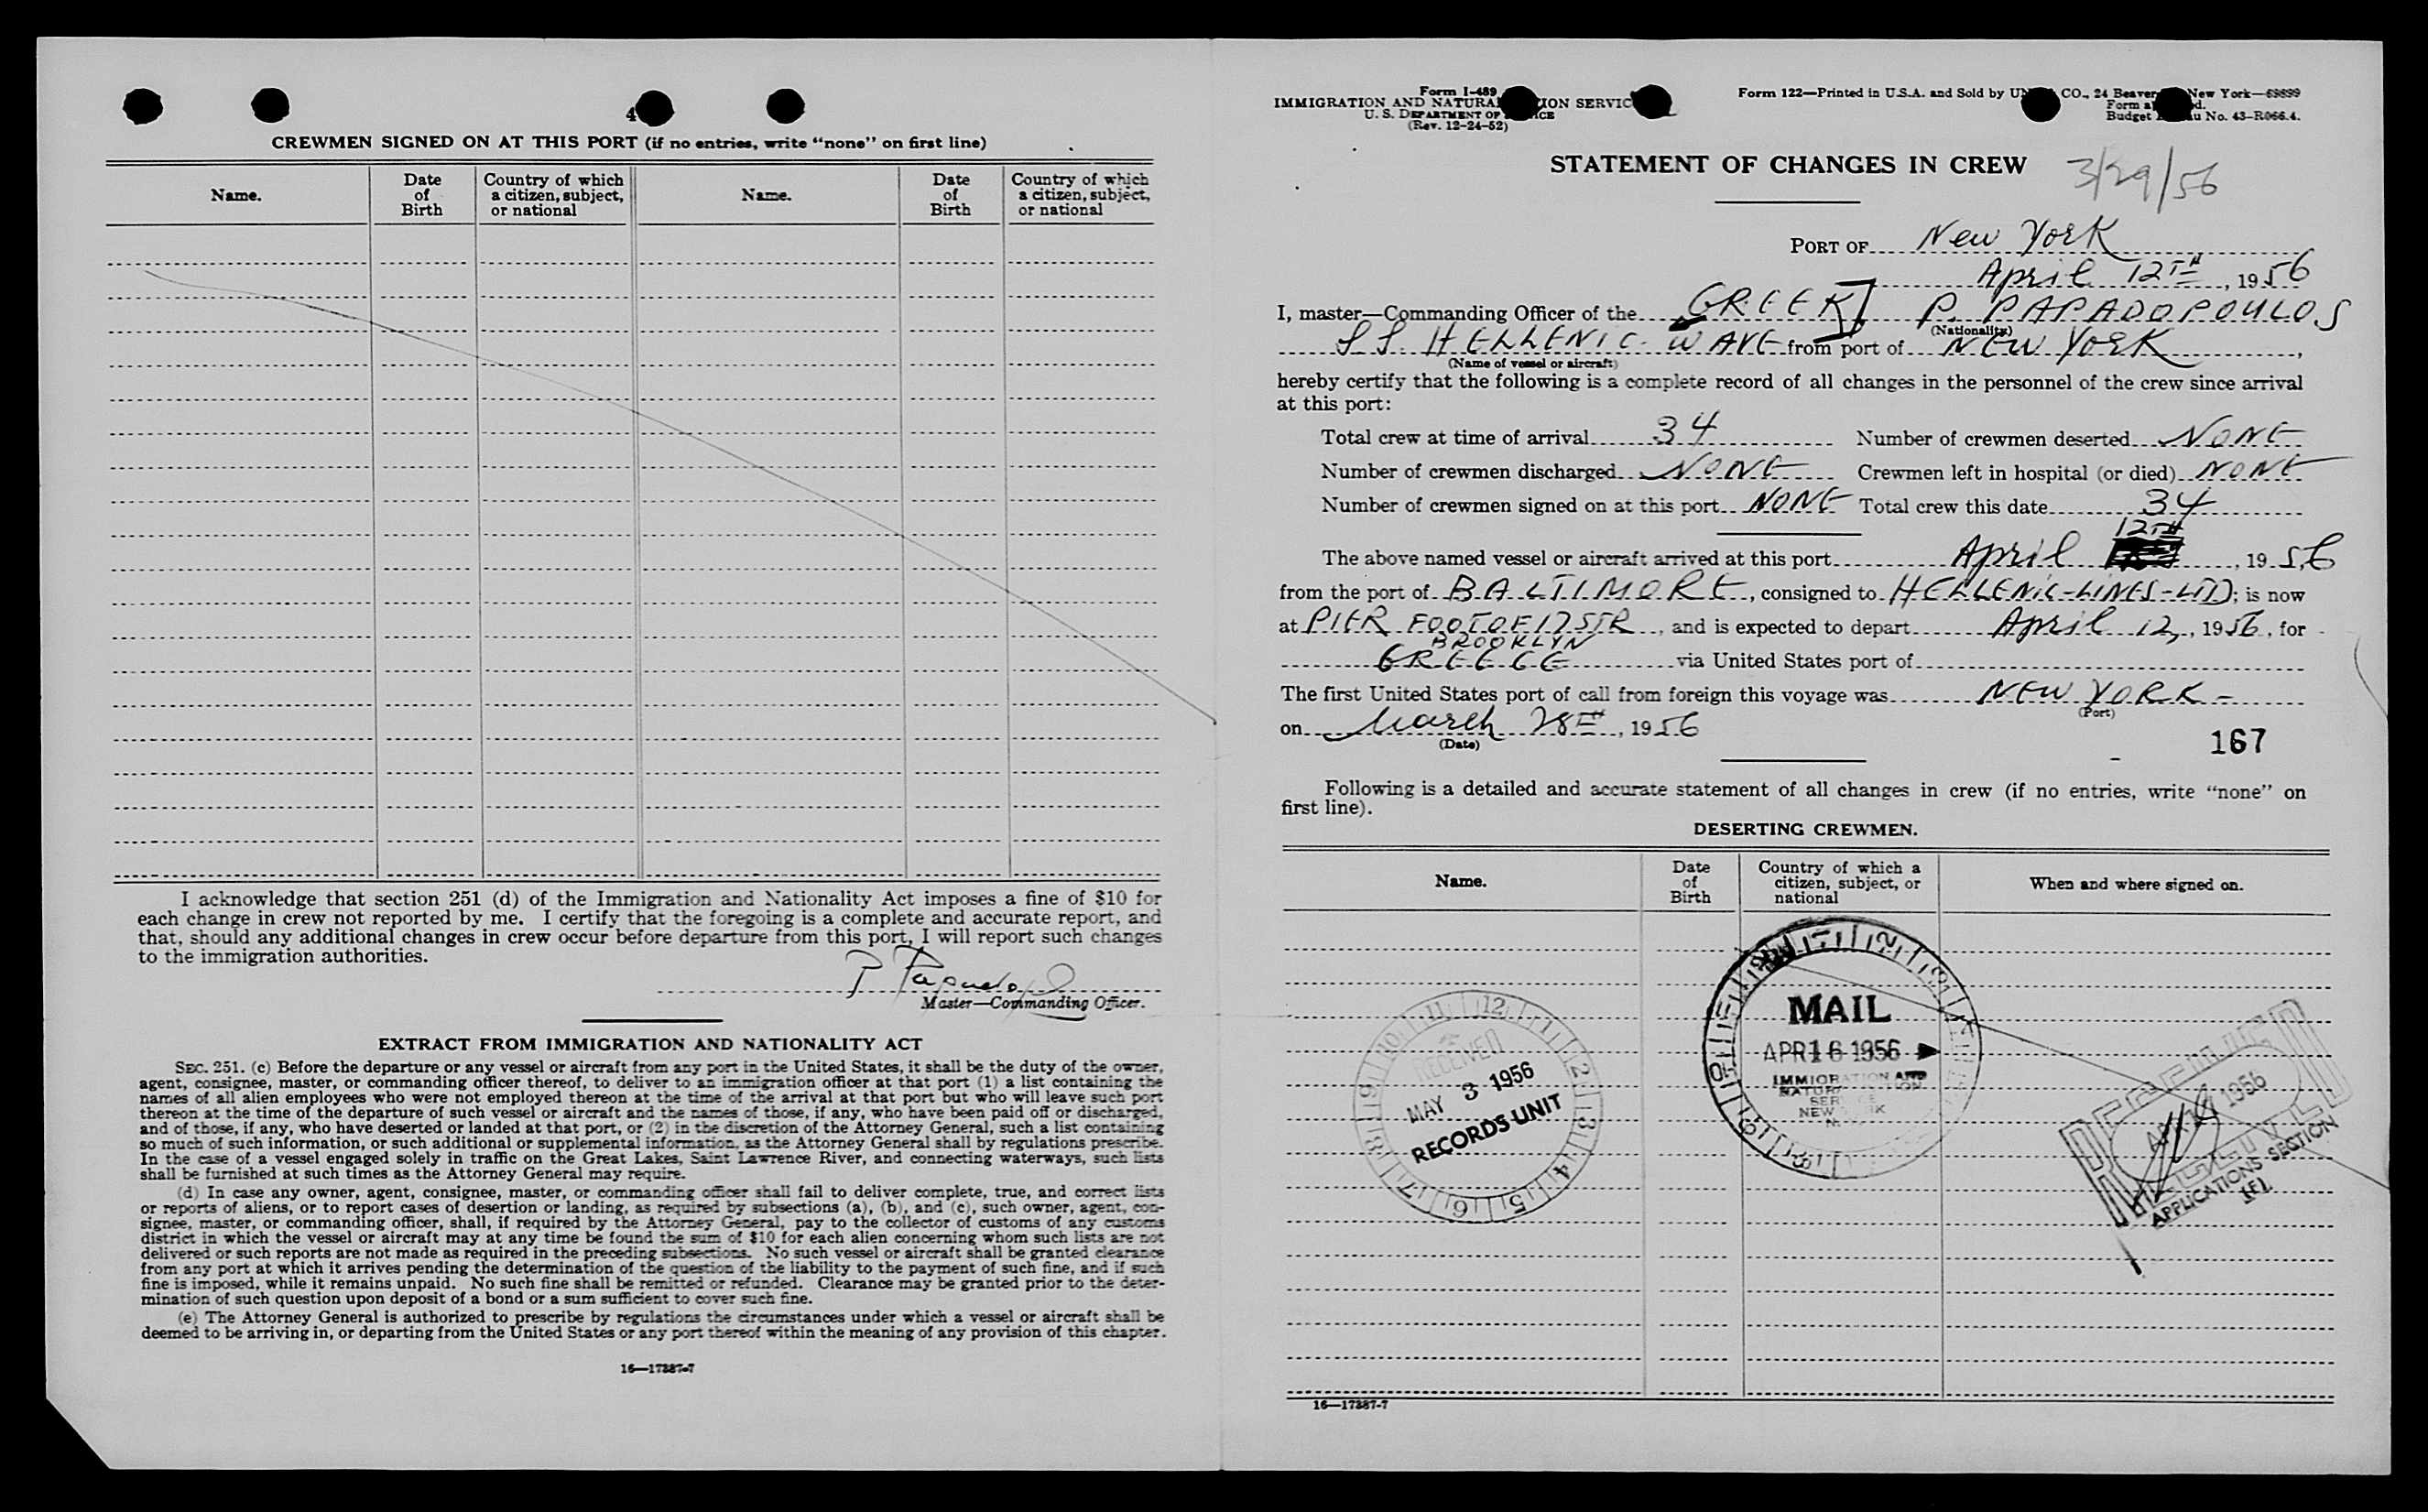 4
CREWMEN SIGNED ON AT THIS PORT (if no entries, write “none” on first line)
Name. Date of Birth Country of which a citizen, subject, or national Name. Date of Birth Country of which a citizen, subject, or national
I acknowledge that section 251 (d) of the Immigration and Nationality Act imposes a fine of $10 for
each change in crew not reported by me. I certify that the foregoing is a complete and accurate report, and
that, should any additional changes in crew occur before departure from this port, I will report such changes
to the immigration authorities.
Master—Commanding Officer.
EXTRACT FROM IMMIGRATION AND NATIONALITY ACT
SEC. 251. (c) Before the departure or any vessel or aircraft from any port in the United States, it shall be the duty of the owner,
agent, consignee, master, or commanding officer thereof, to deliver to an immigration officer at that port (1) a list containing the
names of all alien employees who were not employed thereon at the time of the arrival at that port but who will leave such port
thereon at the time of the departure of such vessel or aircraft and the names of those, if any, who have been paid off or discharged,
and of those, if any, who have deserted or landed at that port, or (2) in the discretion of the Attorney General, such a list containing
so much of such information, or such additional or supplemental information, as the Attorney General shall by regulations prescribe.
In the case of a vessel engaged solely in traffic on the Great Lakes, Saint Lawrence River, and connecting waterways, such lists
shall be furnished at such times as the Attorney General may require.
(d) In case any owner, agent, consignee, master, or commanding officer shall fail to deliver complete, true, and correct lists
or reports of aliens, or to report cases of desertion or landing, as required by subsections (a), (b), and (c), such owner, agent, con-
signee, master, or commanding officer, shall, if required by the Attorney General, pay to the collector of customs of any customs
district in which the vessel or aircraft may at any time be found the sum of $10 for each alien concerning whom such lists are not
delivered or such reports are not made as required in the preceding subsections. No such vessel or aircraft shall be granted clearance
from any port at which it arrives pending the determination of the question of the liability to the payment of such fine, and if such
fine is imposed, while it remains unpaid. No such fine shall be remitted or refunded. Clearance may be granted prior to the deter-
mination of such question upon deposit of a bond or a sum sufficient to cover such fine.
(e) The Attorney General is authorized to prescribe by regulations the circumstances under which a vessel or aircraft shall be
deemed to be arriving in, or departing from the United States or any port thereof within the meaning of any provision of this chapter.
16—17387-7
Form I-489
IMMIGRATION AND NATURA ION SERVIC
U. S. DEPARTMENT OF ICE
(Rev. 12-24-52)
Form 122—Printed in U.S.A. and Sold by UN CO., 24 Beaver New York—69899
Form a d.
Budget u No. 43-R066.4.
STATEMENT OF CHANGES IN CREW 3/29/56
PORT OF New York
April 12TH, 1956
I, master—Commanding Officer of the GREEK] P. PAPADOPOULOS
(Nationality)
S.S. HELLENIC WAVE from port of NEW YORK,
(Name of vessel or aircraft)
hereby certify that the following is a complete record of all changes in the personnel of the crew since arrival
at this port:
Total crew at time of arrival 34 Number of crewmen deserted NONE
Number of crewmen discharged NONE Crewmen left in hospital (or died) NONE
Number of crewmen signed on at this port NONE Total crew this date 34
The above named vessel or aircraft arrived at this port April 12TH, 1956
from the port of BALTIMORE, consigned to HELLENIC-LINES-LTD; is now
at PIER FOOT OF 17 STR BROOKLYN, and is expected to depart April 12, 1956, for
GREECE via United States port of
The first United States port of call from foreign this voyage was NEW YORK -
(Port)
on March 28TH, 1956
(Date)
167
Following is a detailed and accurate statement of all changes in crew (if no entries, write “none” on
first line).
DESERTING CREWMEN.
Name. Date of Birth Country of which a citizen, subject, or national When and where signed on.
RECEIVED
MAY 3 1956
RECORDS UNIT
MAIL
APR 16 1956
IMMIGRATION AND
RECEIVED
1956
APPLICATIONS SECTION
16—17387-7